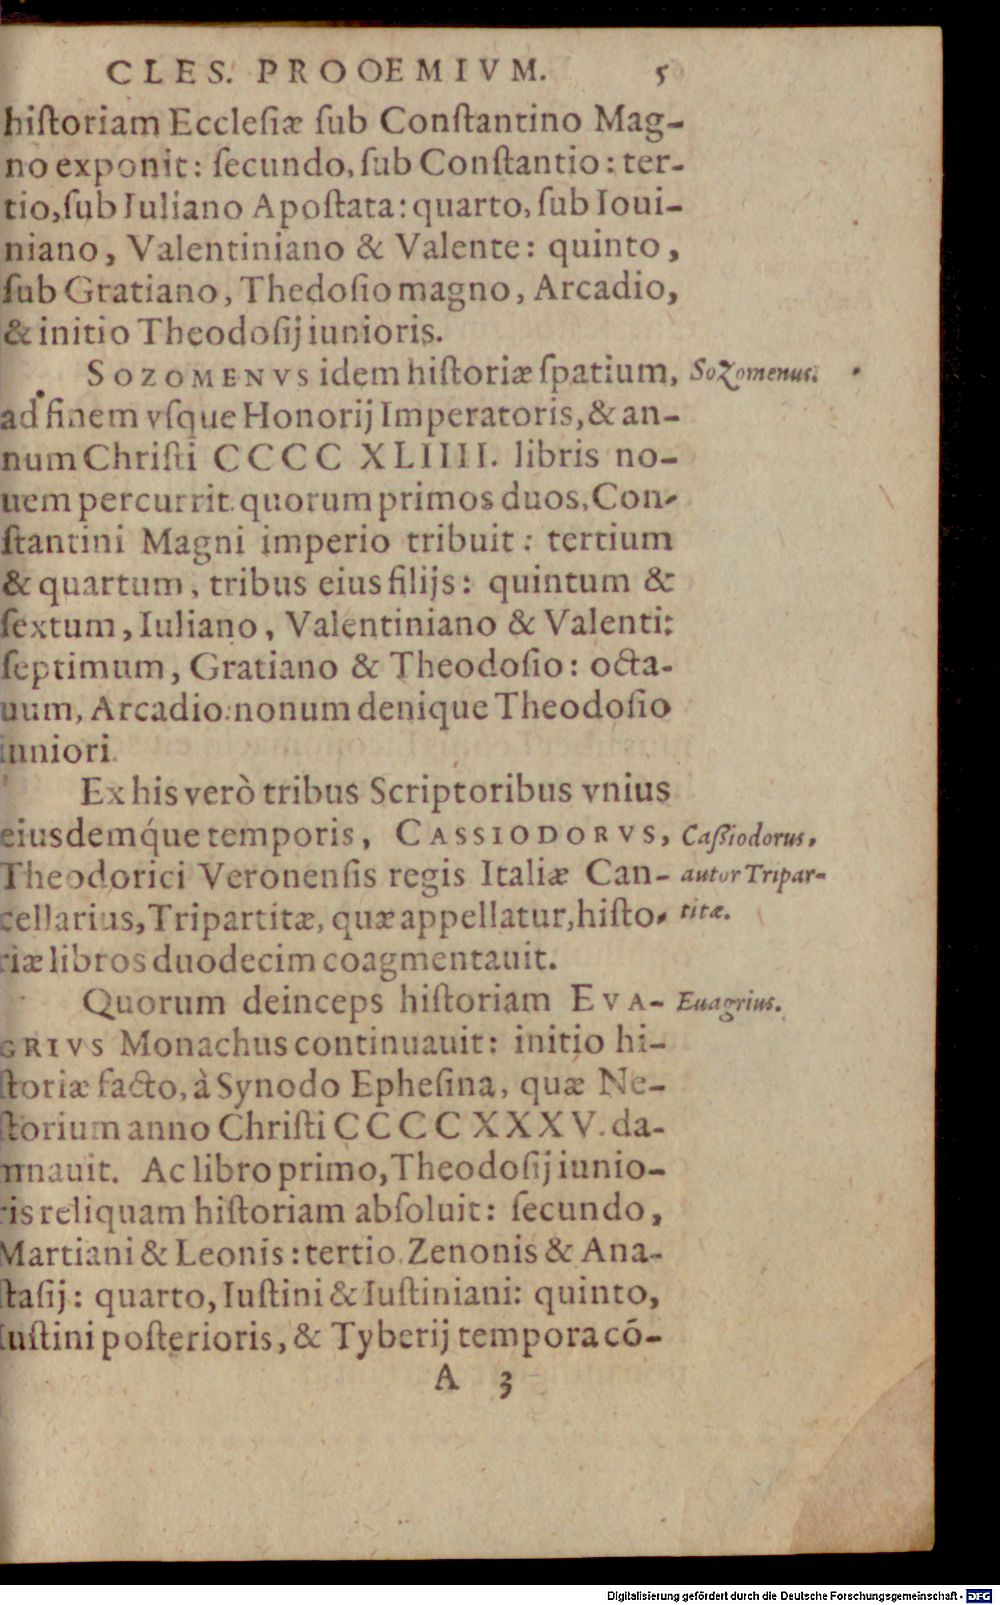 CLES. PROOEMIVM. 5
hiſtoriam Eccleſiæ ſub Conſtantino Mag-
no exponit: ſecundo, ſub Conſtantio: ter-
tio, ſub Iuliano Apoſtata: quarto, ſub Ioui-
niano, Valentiniano & Valente: quinto,
ſub Gratiano, Thedoſio magno, Arcadio,
& initio Theodoſij iunioris.
SOZOMENVS idem hiſtoriæ ſpatium,
Sozomenus.
ad finem vſque Honorij Imperatoris, & an-
num Chriſti CCCC XLIIII. libris no-
uem percurrit. quorum primos duos, Con-
ſtantini Magni imperio tribuit: tertium
& quartum, tribus eius filijs: quintum &
ſextum, Iuliano, Valentiniano & Valenti:
ſeptimum, Gratiano & Theodoſio: octa-
uum, Arcadio: nonum denique Theodoſio
iuniori.
Ex his verò tribus Scriptoribus vnius
eiusdemq́ue temporis, CASSIODORVS,
Caſsiodorus,
Theodorici Veronenſis regis Italiæ Can-
autor Tripar-
cellarius, Tripartitæ, quæ appellatur, hiſto-
titæ.
riæ libros duodecim coagmentauit.
Quorum deinceps hiſtoriam EVA-
Euagrius.
GRIVS Monachus continuauit: initio hi-
ſtoriæ facto, à Synodo Epheſina, quæ Ne-
ſtorium anno Chriſti CCCC XXXV. da-
mnauit. Ac libro primo, Theodoſij iunio-
ris reliquam hiſtoriam abſoluit: ſecundo,
Martiani & Leonis: tertio, Zenonis & Ana-
ſtaſij: quarto, Iuſtini & Iuſtiniani: quinto,
Iuſtini poſterioris, & Tyberij tempora cō-
A 3
Digitalisierung gefördert durch die Deutsche Forschungsgemeinschaft - DFG